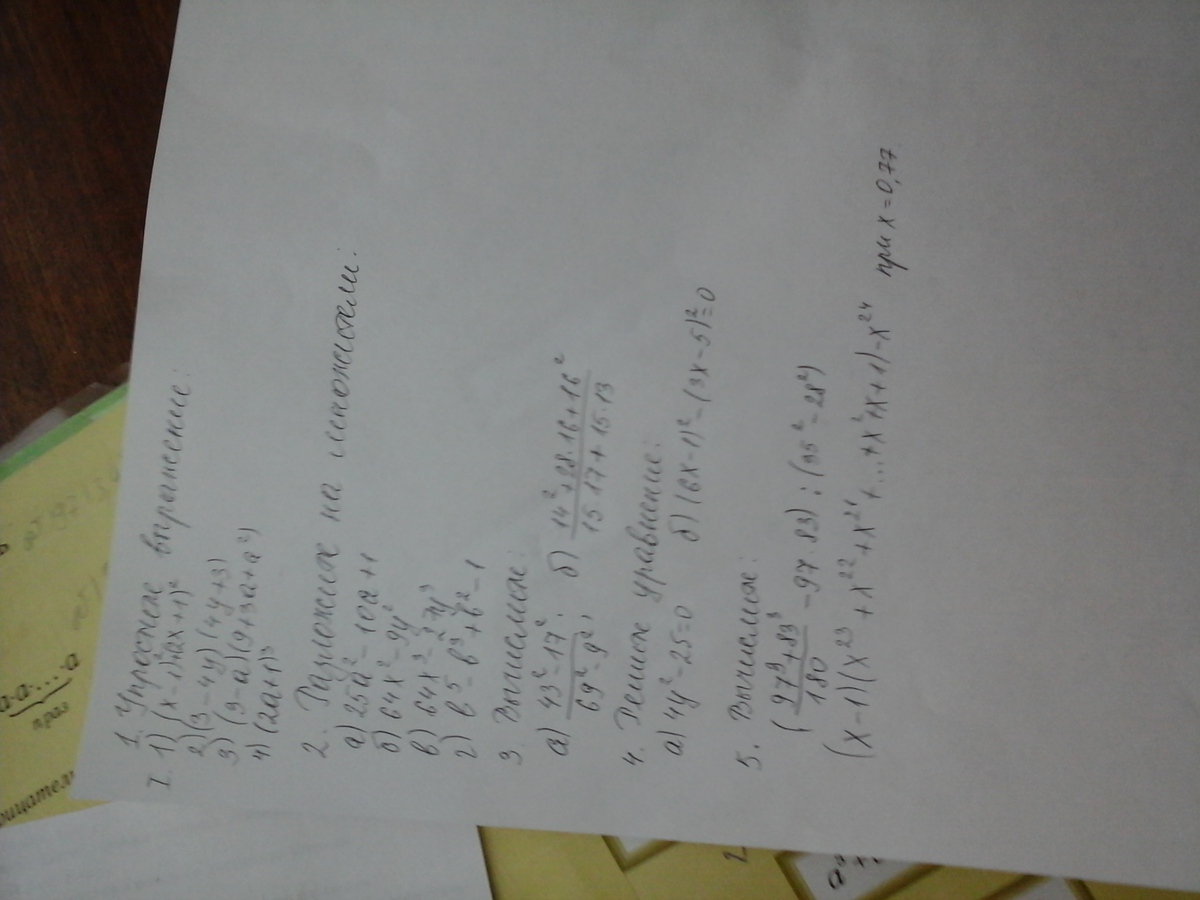 I. 1. Упростить выражение:
1) (x-1)²-(2x+1)²
2) (3-4y)(4y+3)
3) (3-a)(9+3a+a²)
4) (2a+1)³
2. Разложить на множители:
а) 25a²-10a+1
б) 64x²-9y²
в) 64x³-27y³
г) b⁵-b³+b²-1
3. Вычислить:
а) (43²-17²)/(69²-9²); б) (14²+28·16+16²)/(15·17+15·13)
4. Решить уравнение:
а) 4y²-25=0 б) (6x-1)²-(3x-5)²=0
5. Вычислить:
((97³+83³)/180-97·83):(35²-28²)
(x-1)(x²³+x²²+x²¹+...+x²+x+1)-x²⁴ при x=0,77
a·a·...·a